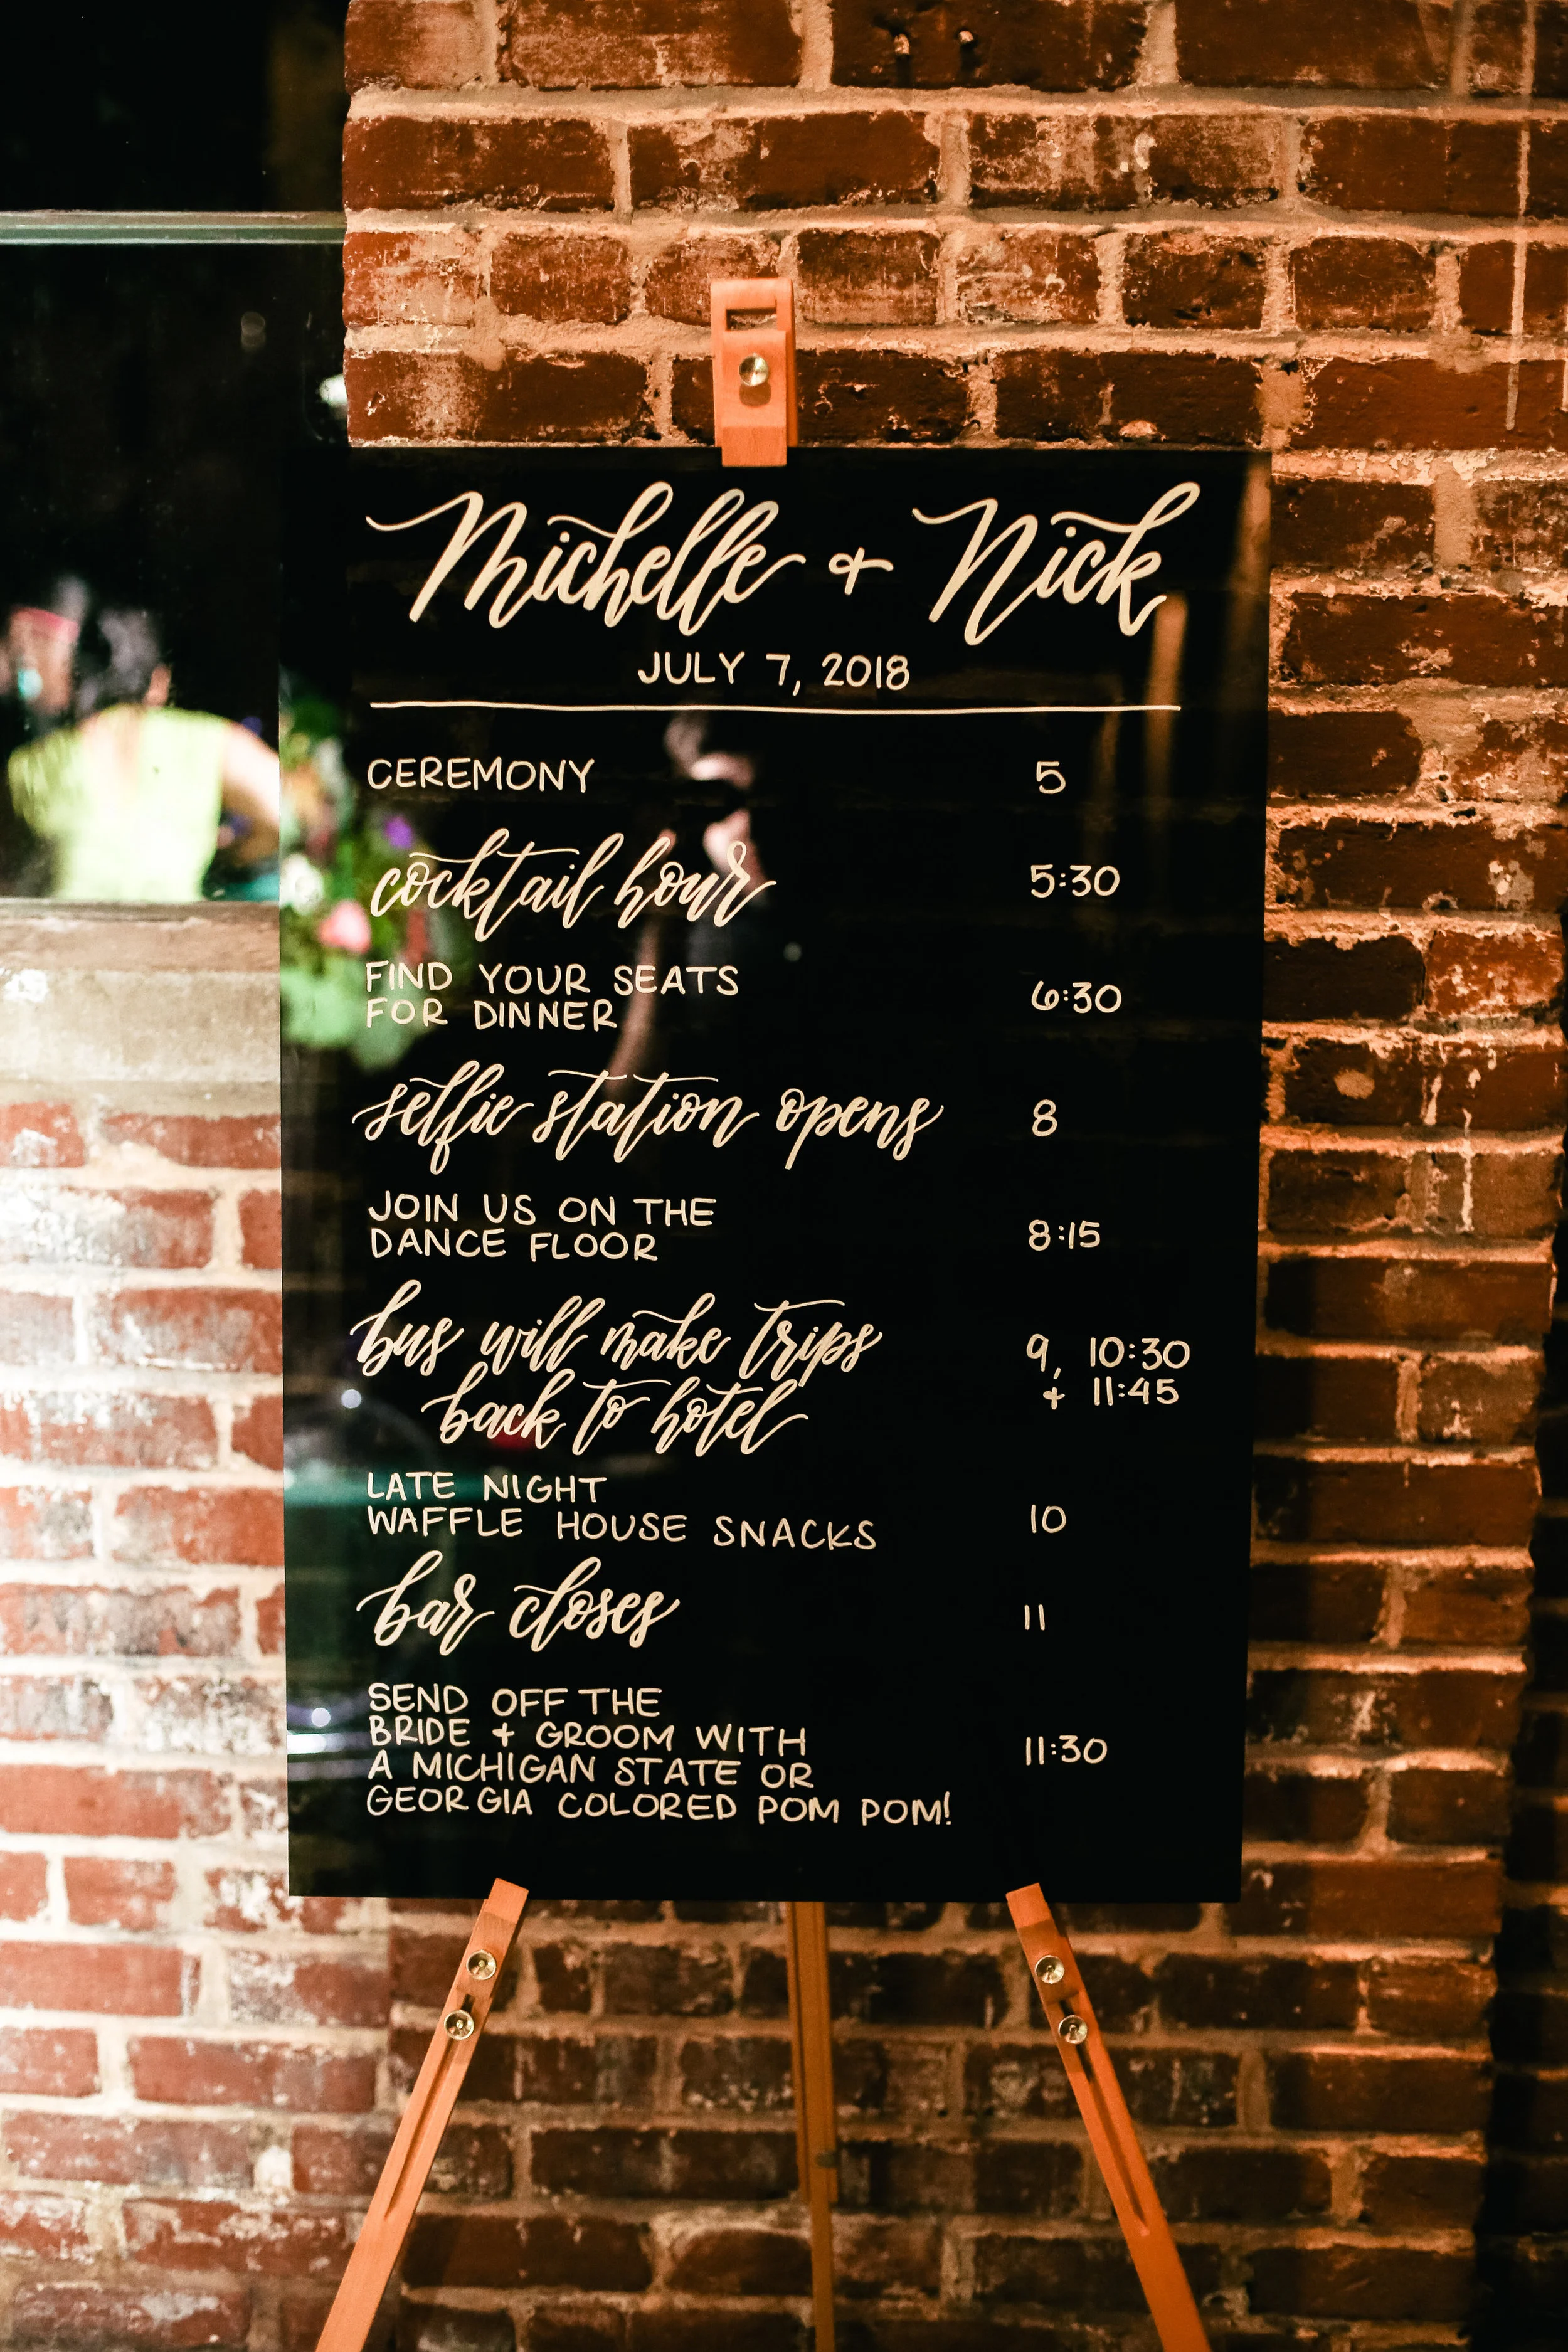 Michelle + Nick
JULY 7, 2018
CEREMONY 5
cocktail hour 5:30
FIND YOUR SEATS
FOR DINNER 6:30
selfie station opens 8
JOIN US ON THE
DANCE FLOOR 8:15
bus will make trips 9, 10:30
back to hotel + 11:45
LATE NIGHT
WAFFLE HOUSE SNACKS 10
bar closes 11
SEND OFF THE
BRIDE + GROOM WITH 11:30
A MICHIGAN STATE OR
GEORGIA COLORED POM POM!